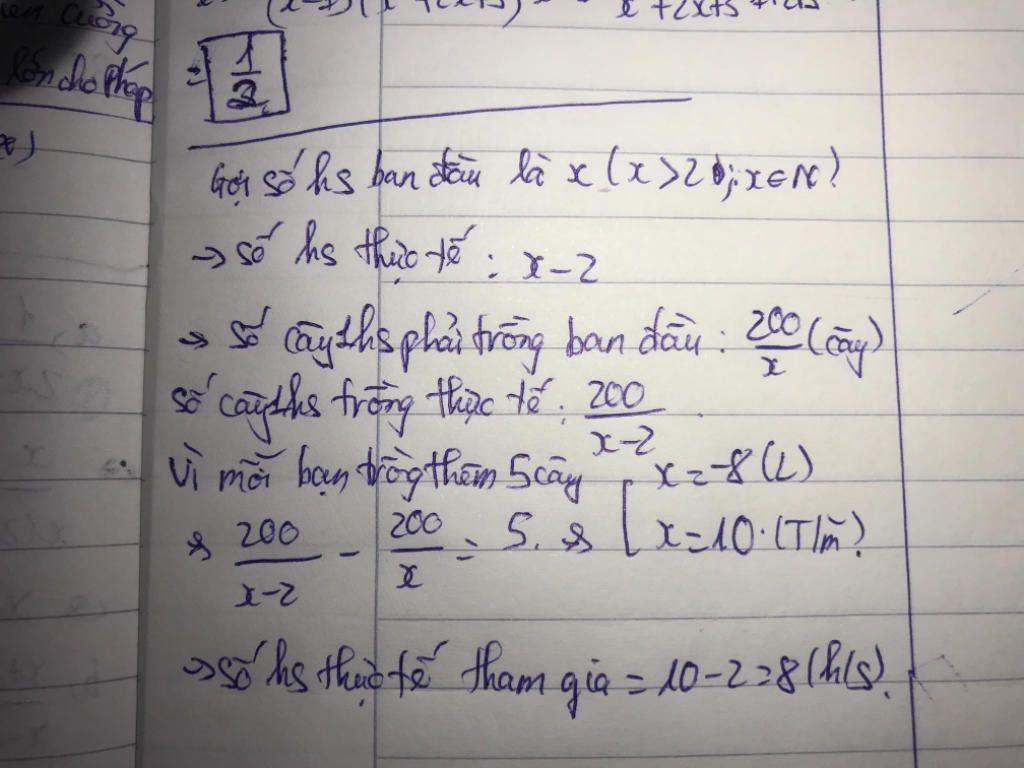 cuồng
lớn cho pháp
= 1/2
Gọi số hs ban đầu là x (x>2; x∈N)
→ số hs thực tế : x-2
→ số cây 1hs phải trồng ban đầu : 200/x (cây)
số cây 1hs trồng thực tế : 200/(x-2)
Vì mỗi bạn trồng thêm 5 cây
200/(x-2) - 200/x = 5. [ x = -8 (L)
x = 10 (T/m)
→ số hs thực tế tham gia = 10-2=8(h/s).